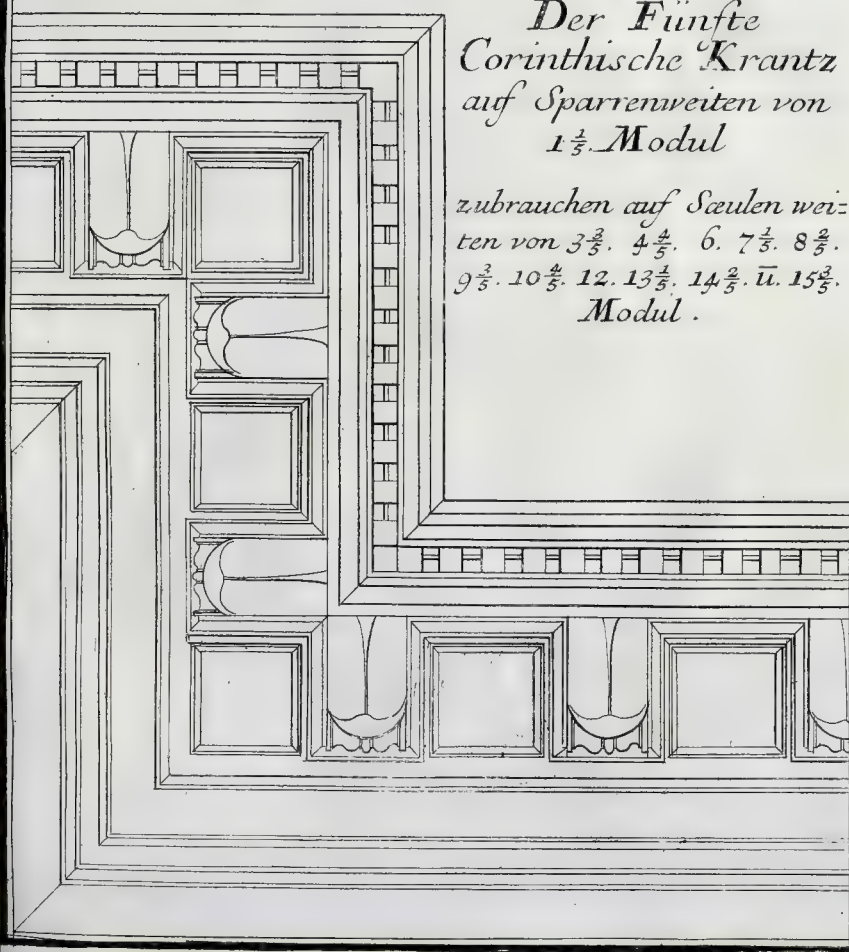 Der Fünfte
Corinthische Krantz
auf Sparrenweiten von
1 1/5. Modul
zubrauchen auf Sæulen wei=
ten von 3 3/5. 4 4/5. 6. 7 1/5. 8 2/5.
9 3/5. 10 4/5. 12. 13 1/5. 14 2/5. ū. 15 3/5.
Modul.